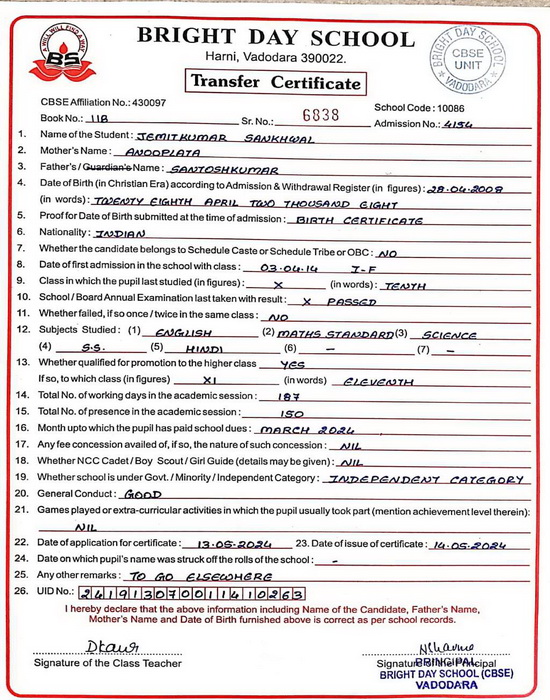 BRIGHT DAY SCHOOL
Harni, Vadodara 390022.
Transfer Certificate
A WILL WILL FIND A WAY
BS
BRIGHT DAY SCHOOL
CBSE
UNIT
VADODARA
CBSE Affiliation No.: 430097
School Code : 10086
Book No.: 11B Sr. No.: 6838 Admission No.: 4154
1. Name of the Student : JEMITKUMAR SANKHWAL
2. Mother's Name : ANOOPLATA
3. Father's / Guardian's Name : SANTOSHKUMAR
4. Date of Birth (in Christian Era) according to Admission & Withdrawal Register (in figures) : 28-04-2008
(in words) : TWENTY EIGHTH APRIL TWO THOUSAND EIGHT
5. Proof for Date of Birth submitted at the time of admission : BIRTH CERTIFICATE
6. Nationality : INDIAN
7. Whether the candidate belongs to Schedule Caste or Schedule Tribe or OBC : NO
8. Date of first admission in the school with class : 03-04-14 I-F
9. Class in which the pupil last studied (in figures) : X (in words) : TENTH
10. School / Board Annual Examination last taken with result : X PASSED
11. Whether failed, if so once / twice in the same class : NO
12. Subjects Studied : (1) ENGLISH (2) MATHS STANDARD (3) SCIENCE
(4) S.S. (5) HINDI (6) – (7) –
13. Whether qualified for promotion to the higher class YES
If so, to which class (in figures) XI (in words) ELEVENTH
14. Total No. of working days in the academic session : 187
15. Total No. of presence in the academic session : 150
16. Month upto which the pupil has paid school dues : MARCH 2024
17. Any fee concession availed of, if so, the nature of such concession : NIL
18. Whether NCC Cadet / Boy Scout / Girl Guide (details may be given) : NIL
19. Whether school is under Govt. / Minority / Independent Category : INDEPENDENT CATEGORY
20. General Conduct : GOOD
21. Games played or extra-curricular activities in which the pupil usually took part (mention achievement level therein) :
NIL
22. Date of application for certificate : 13-05-2024 23. Date of issue of certificate : 14-05-2024
24. Date on which pupil's name was struck off the rolls of the school : –
25. Any other remarks : TO GO ELSEWHERE
26. UID No.: 241913070011410263
I hereby declare that the above information including Name of the Candidate, Father's Name,
Mother's Name and Date of Birth furnished above is correct as per school records.
Signature of the Class Teacher
Signature of the Principal
PRINCIPAL
BRIGHT DAY SCHOOL (CBSE)
VADODARA